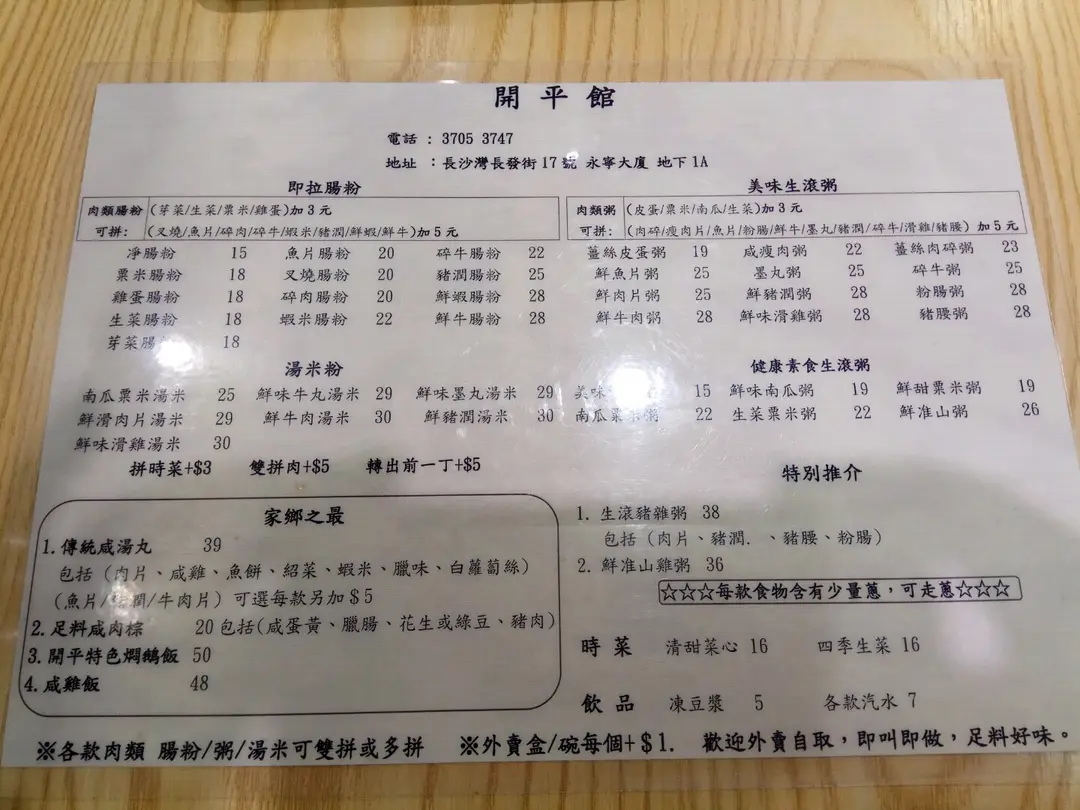 開平館
電話 : 3705 3747
地址 : 長沙灣長發街17號 永寧大廈 地下1A
即拉腸粉
肉類腸粉 (芽菜/生菜/粟米/雞蛋)加3元
可拼: (叉燒/魚片/碎肉/碎牛/蝦米/豬潤/鮮蝦/鮮牛)加5元
淨腸粉 15 魚片腸粉 20 碎牛腸粉 22
粟米腸粉 18 叉燒腸粉 20 豬潤腸粉 25
雞蛋腸粉 18 碎肉腸粉 20 鮮蝦腸粉 28
生菜腸粉 18 蝦米腸粉 22 鮮牛腸粉 28
芽菜腸 18
湯米粉
南瓜粟米湯米 25 鮮味牛丸湯米 29 鮮味墨丸湯米 29
鮮滑肉片湯米 29 鮮牛肉湯米 30 鮮豬潤湯米 30
鮮味滑雞湯米 30
拼時菜+$3 雙拼肉+$5 轉出前一丁+$5
家鄉之最
1.傳統咸湯丸 39
包括 (肉片、咸雞、魚餅、紹菜、蝦米、臘味、白蘿蔔絲)
(魚片/潤/牛肉片) 可選每款另加$5
2.足料咸肉棕 20 包括(咸蛋黃、臘腸、花生或綠豆、豬肉)
3.開平特色焗鵝飯 50
4.咸雞飯 48
美味生滾粥
肉類粥 (皮蛋/粟米/南瓜/生菜)加3元
可拼: (肉碎/瘦肉片/魚片/粉腸/鮮牛/墨丸/豬潤/碎牛/滑雞/豬腰)加5元
薑絲皮蛋粥 19 咸瘦肉粥 22 薑絲肉碎粥 23
鮮魚片粥 25 墨丸粥 25 碎牛粥 25
鮮肉片粥 25 鮮豬潤粥 28 粉腸粥 28
鮮牛肉粥 28 鮮味滑雞粥 28 豬腰粥 28
健康素食生滾粥
美味 15 鮮味南瓜粥 19 鮮甜粟米粥 19
南瓜粟米粥 22 生菜粟米粥 22 鮮准山粥 26
特別推介
1. 生滾豬雜粥 38
包括 (肉片、豬潤.、豬腰、粉腸)
2. 鮮准山雞粥 36
☆☆☆每款食物含有少量蔥，可走蔥☆☆☆
時菜 清甜菜心 16 四季生菜 16
飲品 凍豆漿 5 各款汽水 7
※各款肉類 腸粉/粥/湯米可雙拼或多拼 ※外賣盒/碗每個+$1. 歡迎外賣自取，即叫即做，足料好味。